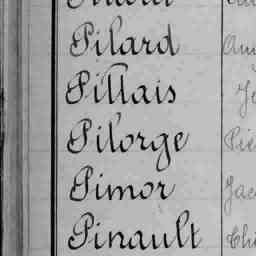 Pilard
Pillais
Pilorge
Pimor
Pinault